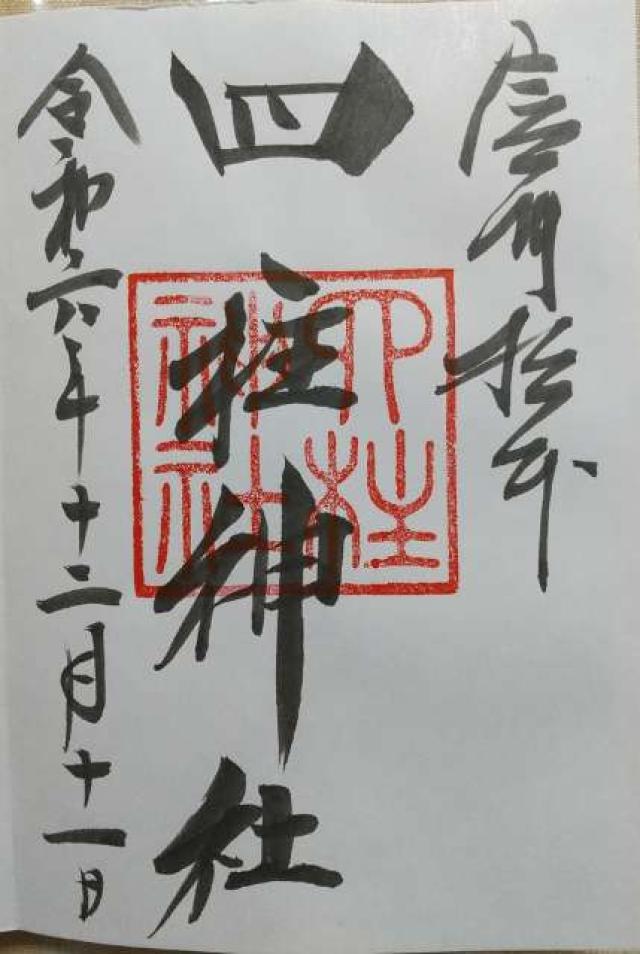 信州松本
四柱神社
四柱
神社
令和六年十二月十一日